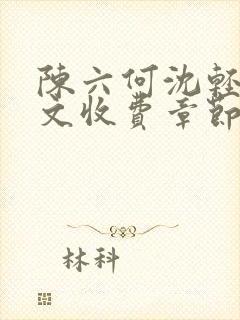 陳六何沈輕
文收費章節
林科